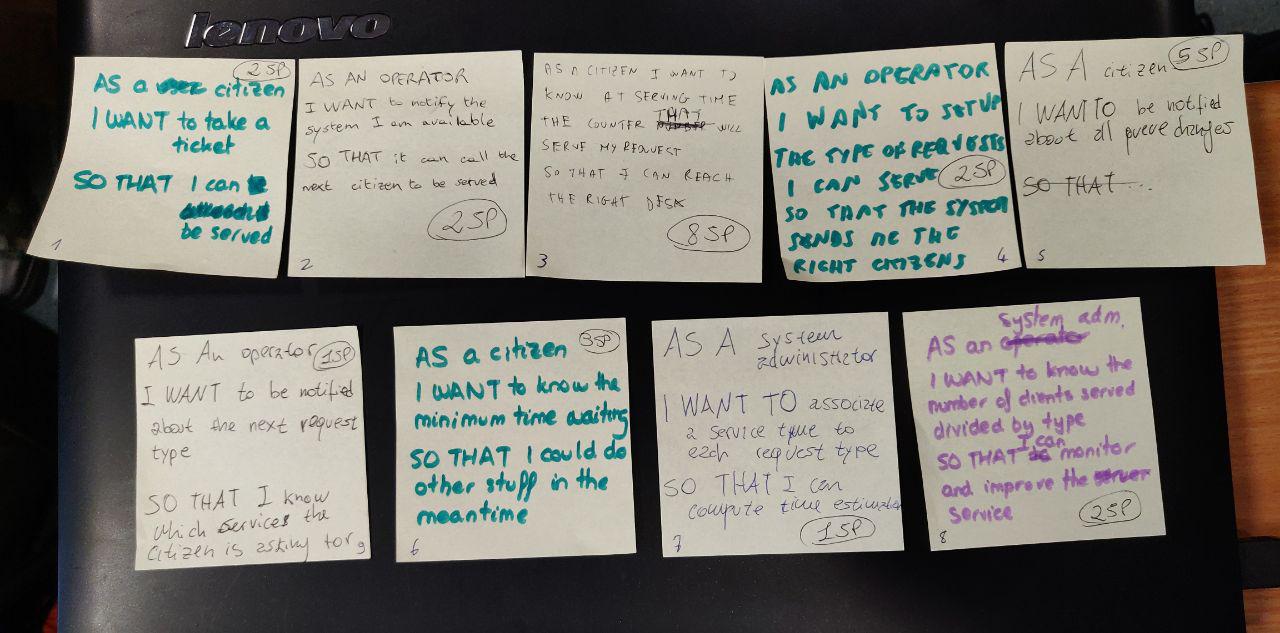 lenovo
2SP
AS a citizen
I WANT to take a
ticket
SO THAT I can
be served
1
AS AN OPERATOR
I WANT to notify the
system I am available
SO THAT it can call the
next citizen to be served
2SP
2
AS A CITIZEN I WANT TO
KNOW AT SERVING TIME
THE COUNTER THAT WILL
SERVE MY REQUEST
SO THAT I CAN REACH
THE RIGHT DESK
8SP
3
AS AN OPERATOR
I WANT TO SETUP
THE TYPE OF REQUESTS
I CAN SERVE 2SP
SO THAT THE SYSTEM
SENDS ME THE
RIGHT CITIZENS
4
AS A citizen 5SP
I WANT TO be notified
about all queue changes
SO THAT ...
5
AS An operator 1SP
I WANT to be notified
about the next request
type
SO THAT I know
which services the
citizen is asking for
9
AS a citizen 3SP
I WANT to know the
minimum time waiting
SO THAT I could do
other stuff in the
meantime
6
AS A system
administrator
I WANT TO associate
a service time to
each request type
SO THAT I can
compute time estimation
1SP
7
system adm.
AS an operator
I WANT to know the
number of clients served
divided by type
SO THAT I can monitor
and improve the server
service
2SP
8